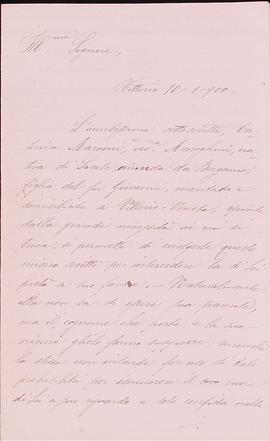 Ill.mo Signore,
Vittorio 10-1-900.
L'umilissima sottoscritta, Ca
terina Marconi, ved.a Marcolini, na
tiva di Sacile, oriunda da Bergamo,
figlia del fu Giovanni, maritata e
domiciliata a Vittorio-Veneto, spinta
dalla grande necessità in cui si
trova, si permette di rivolgerle questo
misero scritto per intercedere la di Lei
pietà a suo favore. - Naturalmente
ella non sa di essere sua parente,
ma il cognome che porta e la sua
origine glielo fanno supporre; sennonchè
la stessa non intende far uso di tale
probabilità per commuovere il suo cuore
di Lei a suo riguardo e solo confida nella